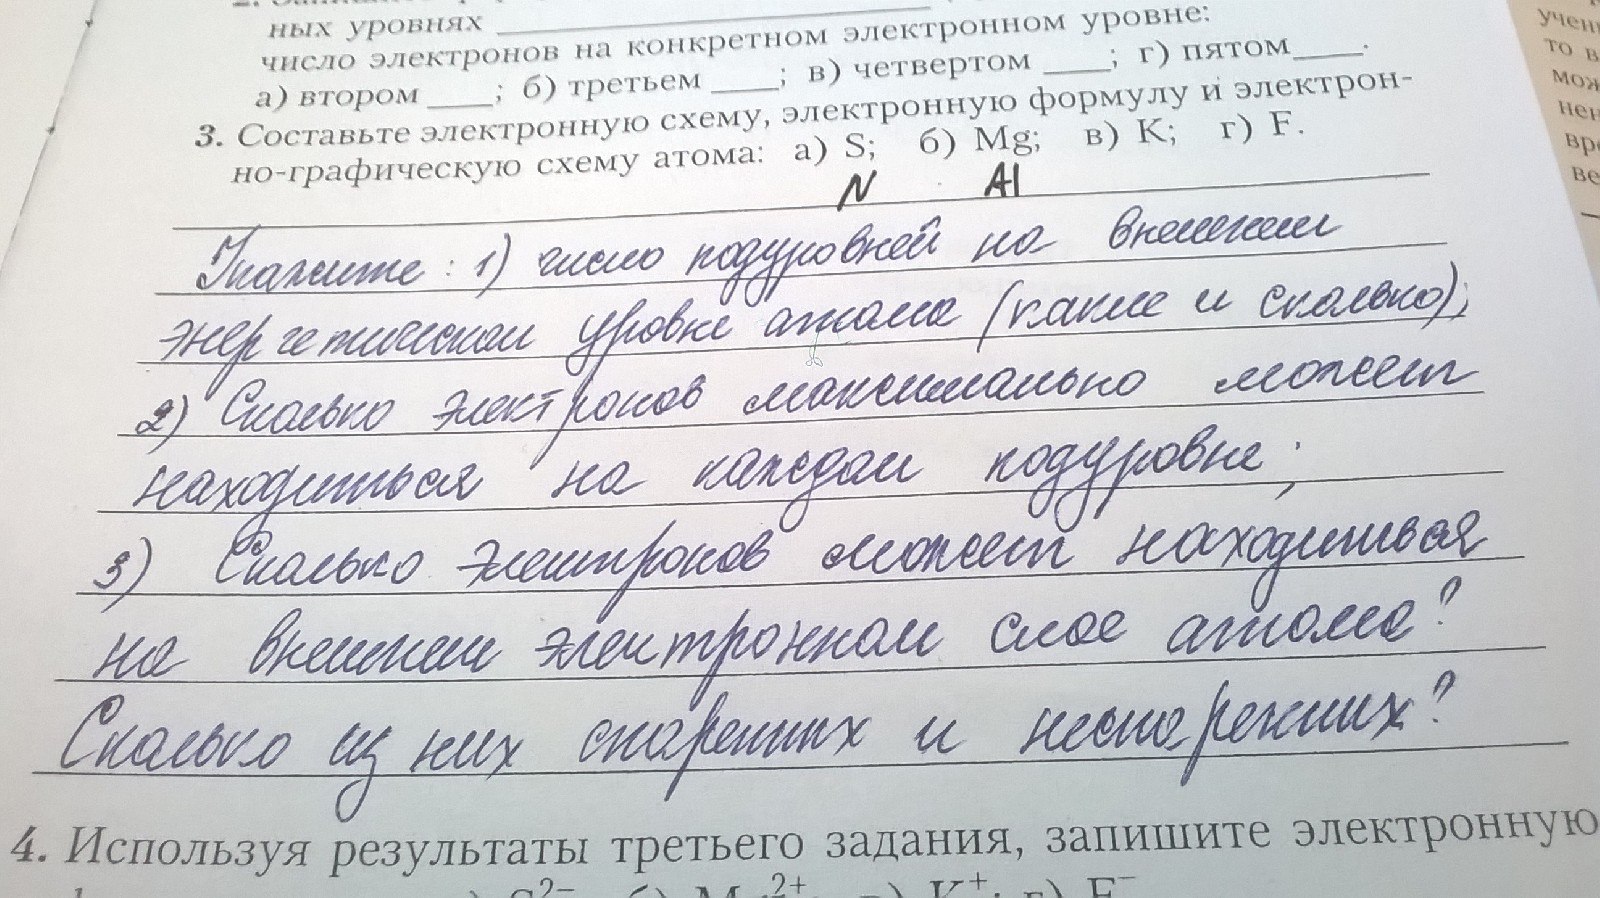 ных уровнях
число электронов на конкретном электронном уровне:
а) втором ____; б) третьем ____; в) четвертом ____; г) пятом____.
3. Составьте электронную схему, электронную формулу и электрон-
но-графическую схему атома: а) S; б) Mg; в) K; г) F.
N Al
Укажите: 1) число подуровней на внешнем
энергетическом уровне атома (какие и сколько);
2) Сколько электронов максимально может
находиться на каждом подуровне;
3) Сколько электронов может находиться
на внешнем электронном слое атома?
Сколько из них спаренных и неспаренных?
4. Используя результаты третьего задания, запишите электронную
учен
то в
мож
нен
вре
ве